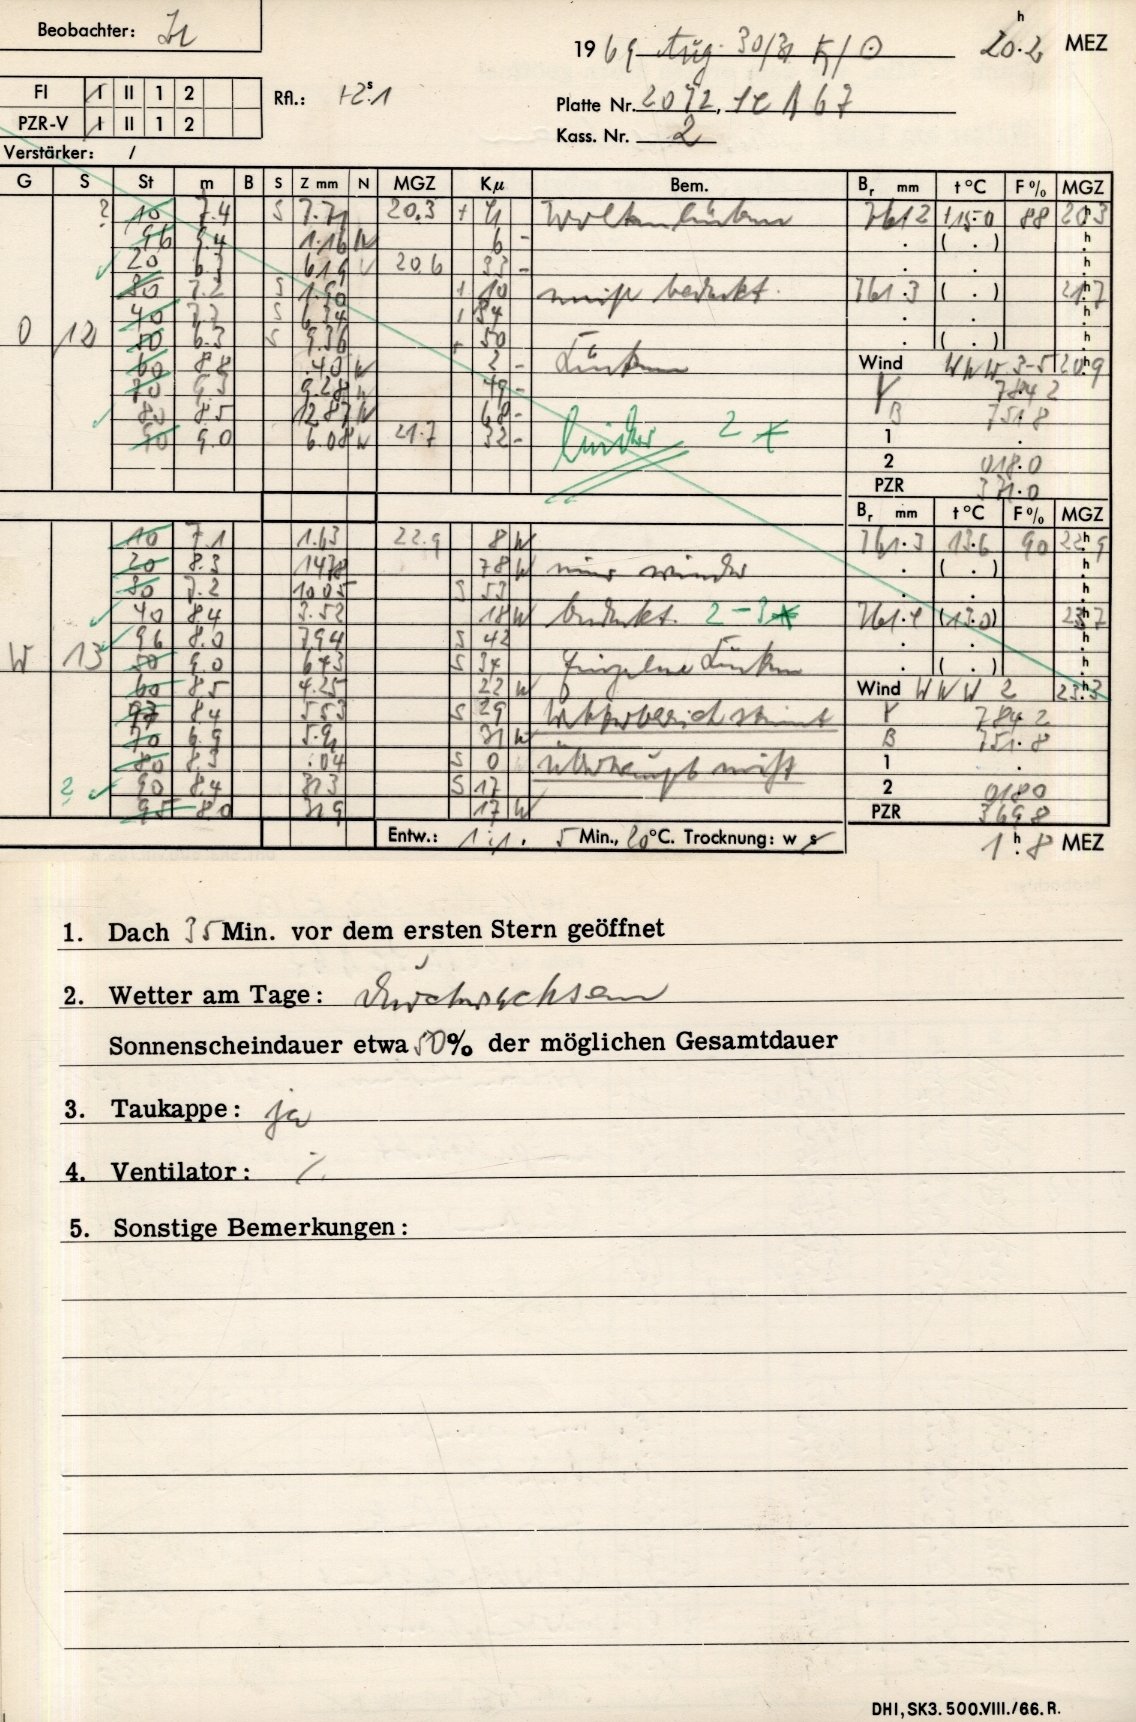 Beobachter:
1969 Aug. 30/31 ♄/☉ 20h.2 MEZ
FI I II 1 2
Rfl.: +2s.1
Platte Nr. 2092,
PZR-V I II 1 2
Kass. Nr. 2
Verstärker: /
G S St m B S Z mm N MGZ Kμ Bem. Br mm t°C F% MGZ
? 10 7.4 S 7.71 20.3 + 761.2 +15.0 88 20h3
96 9.4 1.16 W 6 - . ( . ) h
20 6.3 6.19 20.6 33 - . . h
30 7.2 S 1.90 + 10 nicht bedeckt. 761.3 ( . ) 21h7
40 7.7 S 6.34 + 34 . . h
0 12 50 6.3 S 9.36 + 50 . ( . ) h
60 8.8 .40 W 2 - Lücken Wind WNW 3-5 20h9
70 9.3 9.28 W 49 - 784.2
80 8.5 12.87 W 68 - B 751.8
90 9.0 6.08 W 21.7 32 - leider 2 * 1 .
2 018.0
PZR 371.0
Br mm t°C F% MGZ
10 7.1 1.63 22.9 8 W 761.3 13.6 90 22h9
20 8.3 1478 78 W nur wieder . ( . ) h
30 7.2 10.05 S 53 . . h
40 8.4 3.52 18 W bedeckt. 2-3 * 761.4 (13.0) 23h7
96 8.0 7.94 S 42 . . h
W 13 50 9.0 6.43 S 34 einzelne Lücken . ( . ) h
60 8.5 4.25 22 W Wind WNW 2 23h3
97 8.4 5.53 S 29 Wetterbericht stimmt 784.2
70 6.9 5.91 31 W B 751.8
80 8.3 .04 S 0 überhaupt nicht 1 .
? 90 8.4 313 S 17 2 018.0
95 8.0 319 17 W PZR 369.8
Entw.: 1:1. 5 Min., 20°C. Trocknung: w s 1h.8 MEZ
1. Dach 35 Min. vor dem ersten Stern geöffnet
2. Wetter am Tage: durchwachsen
Sonnenscheindauer etwa 50% der möglichen Gesamtdauer
3. Taukappe: ja
4. Ventilator: ·/.
5. Sonstige Bemerkungen:
DHI, SK3. 500.VIII./66. R.